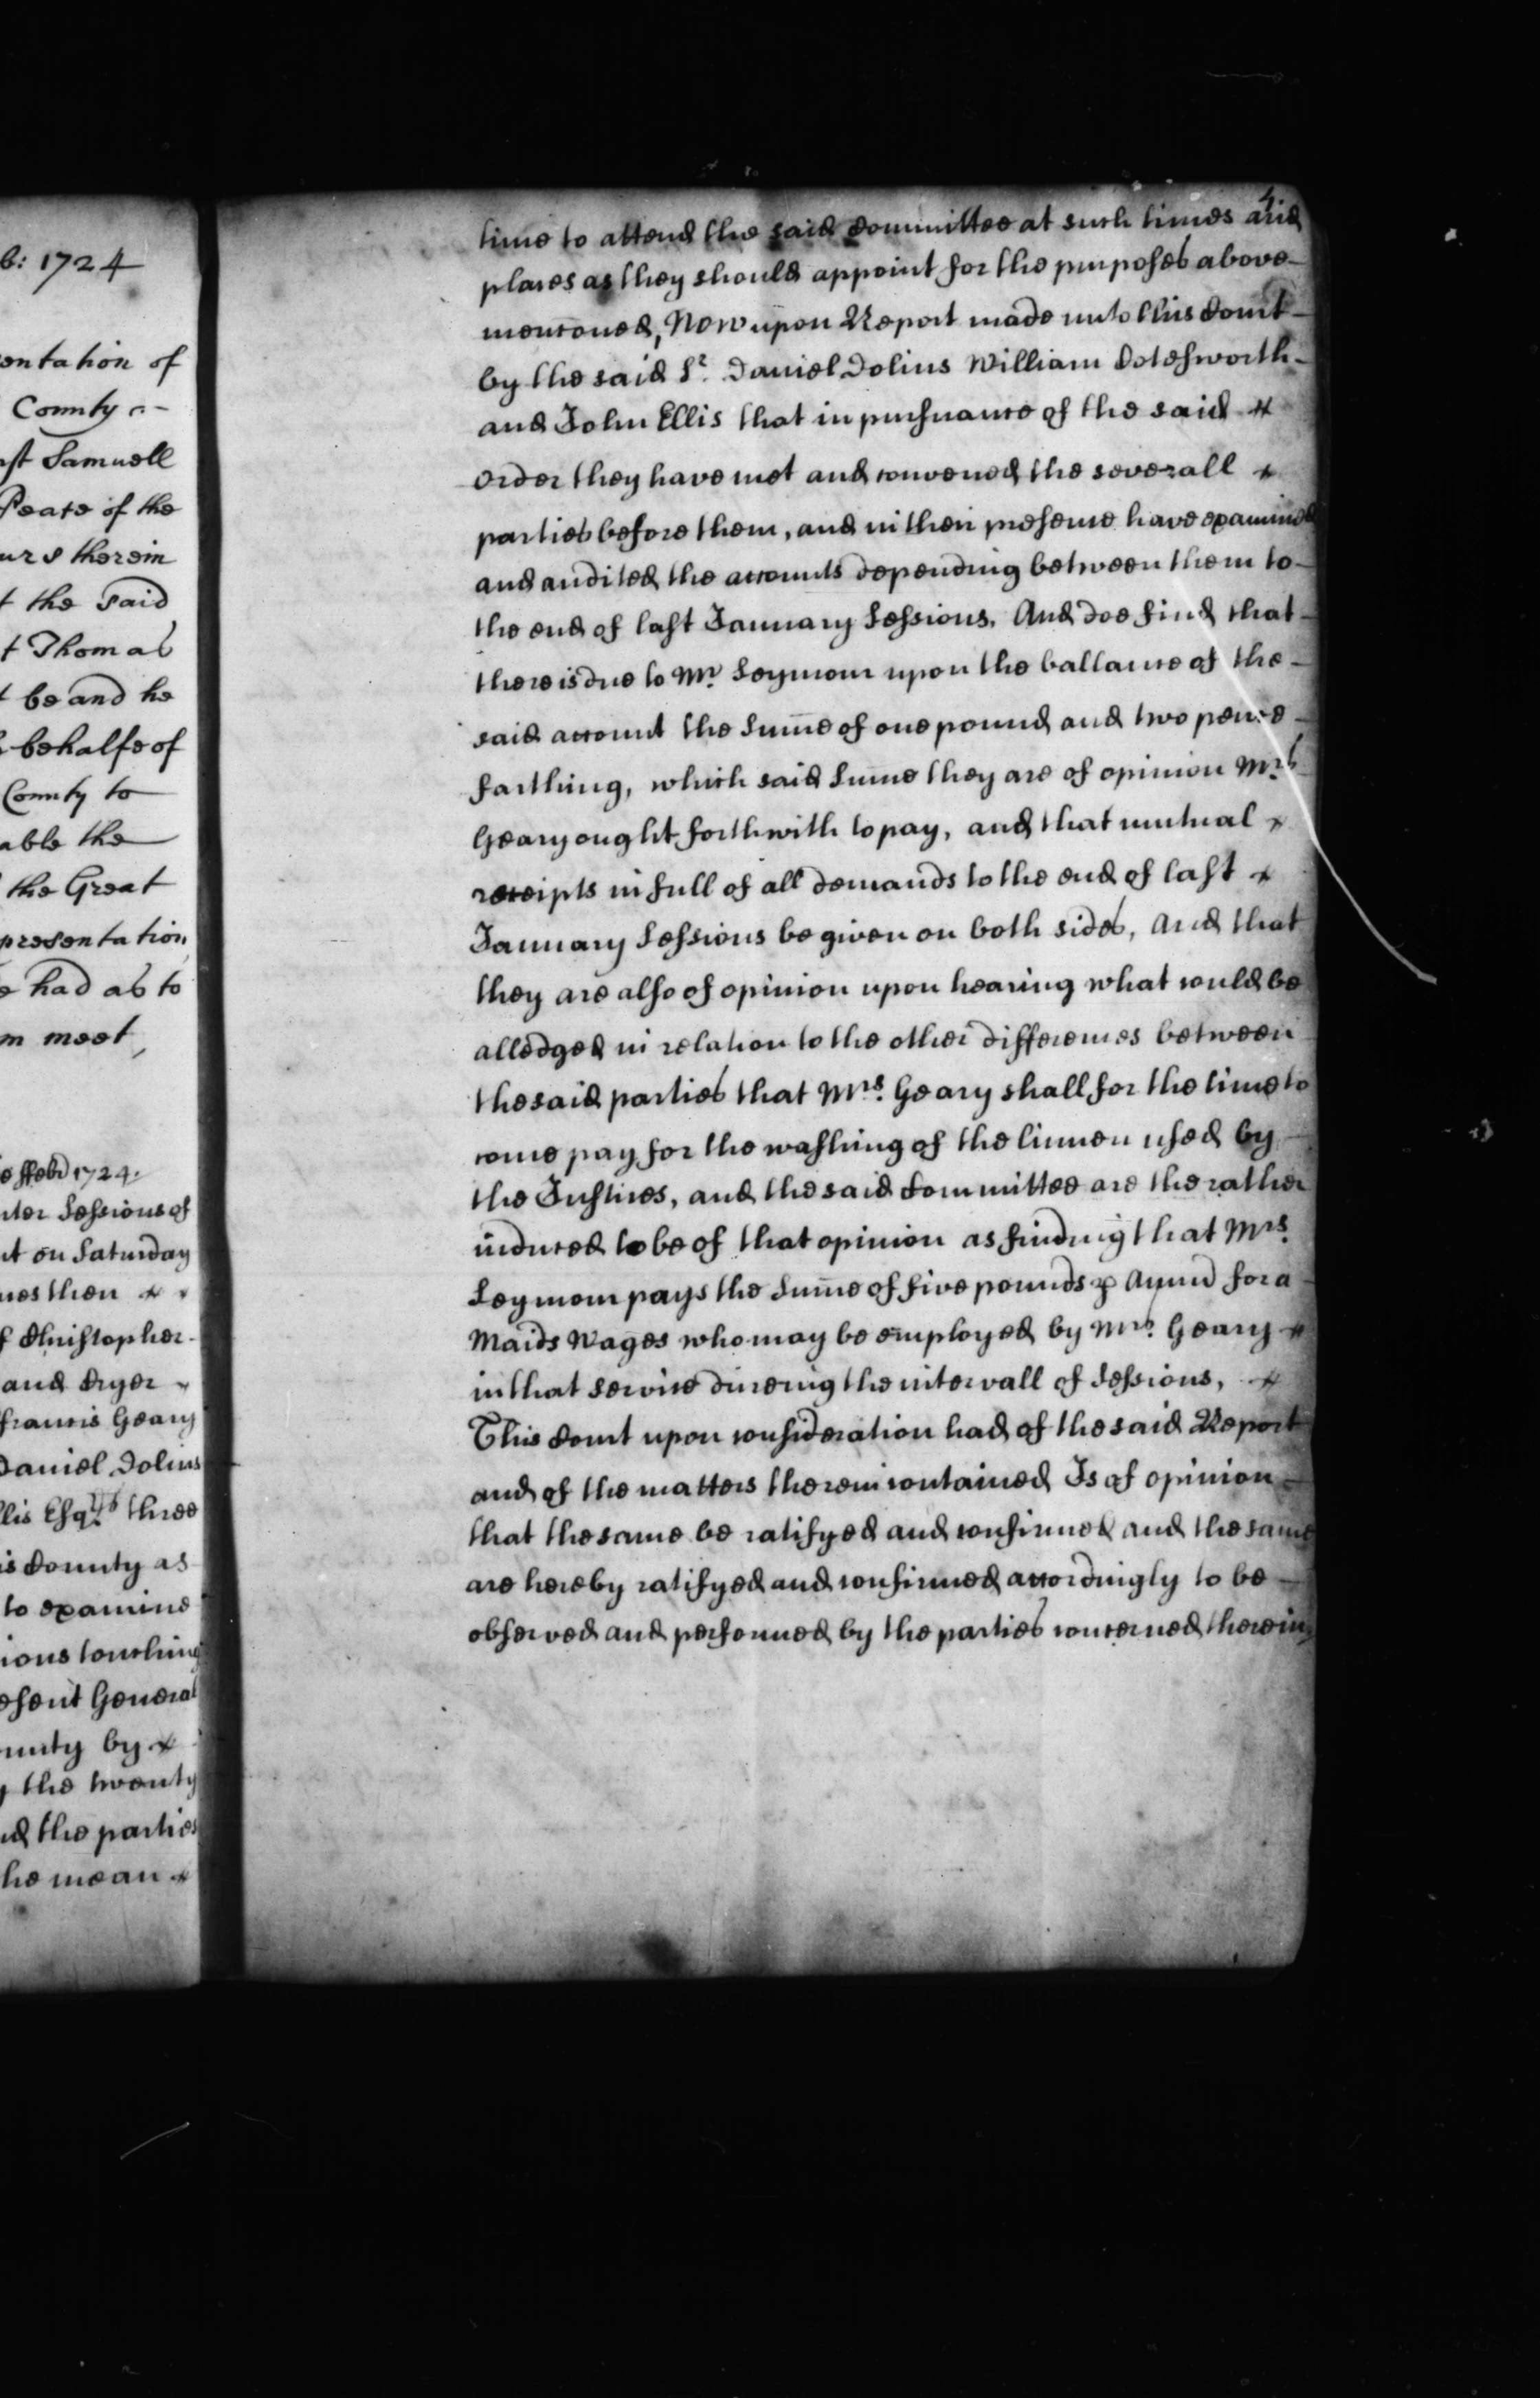 b: 1724
entation of
County
st Samuell
Peace of the
urs therein
t the said
t Thomas
t be and he
behalfe of
County to
able the
the Great
presentation
e had as to
m meet,
e ffebr 1724.
nter Sessions of
nt on Saturday
nes then
f Christopher
and Cryer
francis Geary
Daniel Dolins
llis Esqrs three
is County as
to examine
ions touching
esent General
unty by
y the twenty
nd the parties
he mean
time to attend the said Committee at such times and
places as they should appoint for the purposes above
menconed, Now upon Report made unto this Court
by the said Sr. Daniel Dolins William Cotesworth
and John Ellis that in pursuance of the said
order they have met and convened the severall
parties before them, and in their presence have examined
and audited the accounts depending between them to
the end of last January Sessions, And doe find that
there is due to Mr. Seymour upon the ballance of the
said account the Sum̄e of one pound and two pence
farthing, which said Sum̄e they are of opinion Mrs.
Geary ought forthwith to pay, and that mutual
receipts in full of all demands to the end of last
January Sessions be given on both sides, And that
they are also of opinion upon hearing what could be
alledged in relation to the other differences between
the said parties that Mrs. Geary shall for the time to
come pay for the washing of the linnen used by
the Justices, and the said Committee are the rather
induced to be of that opinion as finding that Mrs.
Seymour pays the Sum̄e of five pounds p Annū for a
Maids Wages who may be employed by Mrs. Geary
in that service dureing the intervall of Sessions,
This Court upon consideration had of the said Report
and of the matters therein contained Is of opinion
that the same be ratifyed and confirmed and the same
are hereby ratifyed and confirmed accordingly to be
observed and performed by the parties concerned therein,